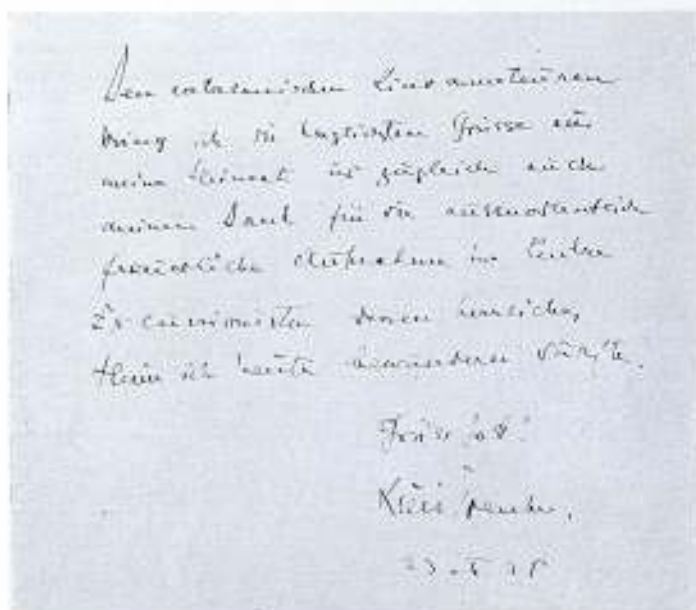 Den catalanischen Kinoamateuren
bring ich die herzlichsten Grüsse aus
meiner Heimat und zugleich auch
meinen Dank für die ausserordentlich
freundliche Aufnahme im Centre
Excursionista dessen herrliches
Heim ich heute bewundern dürfte.
Grüss Gott!